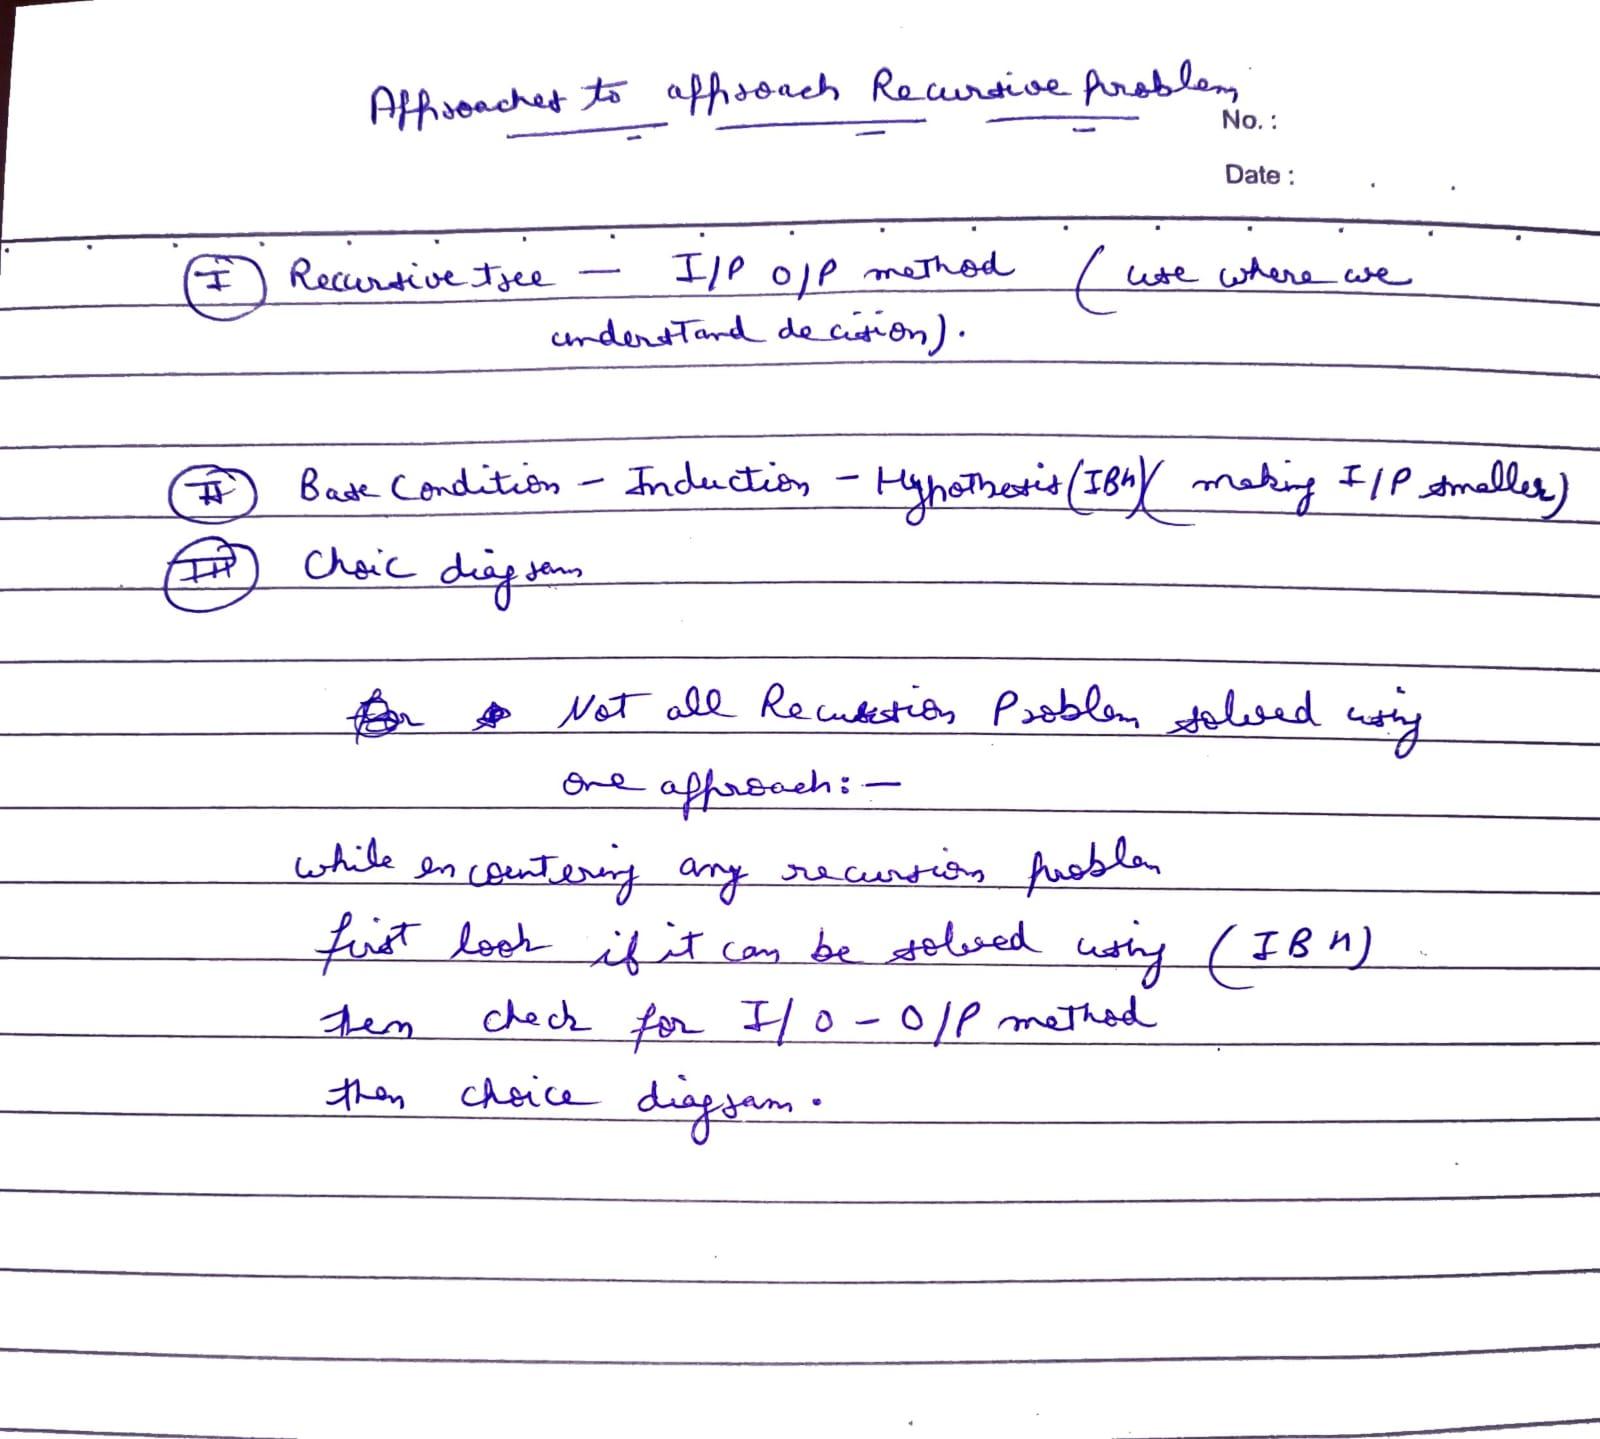 Approaches to approach Recursive Problem
No. :
Date :
I Recursive tree — I/P O/P method ( use where we
understand decision).
II Base Condition - Induction - Hypothesis (IBH) ( making I/P smaller)
III Choic diagram
Not all Recurssion Problem solved using
one approach: —
while encountering any recursion problem
first look if it can be solved using (IBH)
then check for I/O - O/P method
then choice diagram.